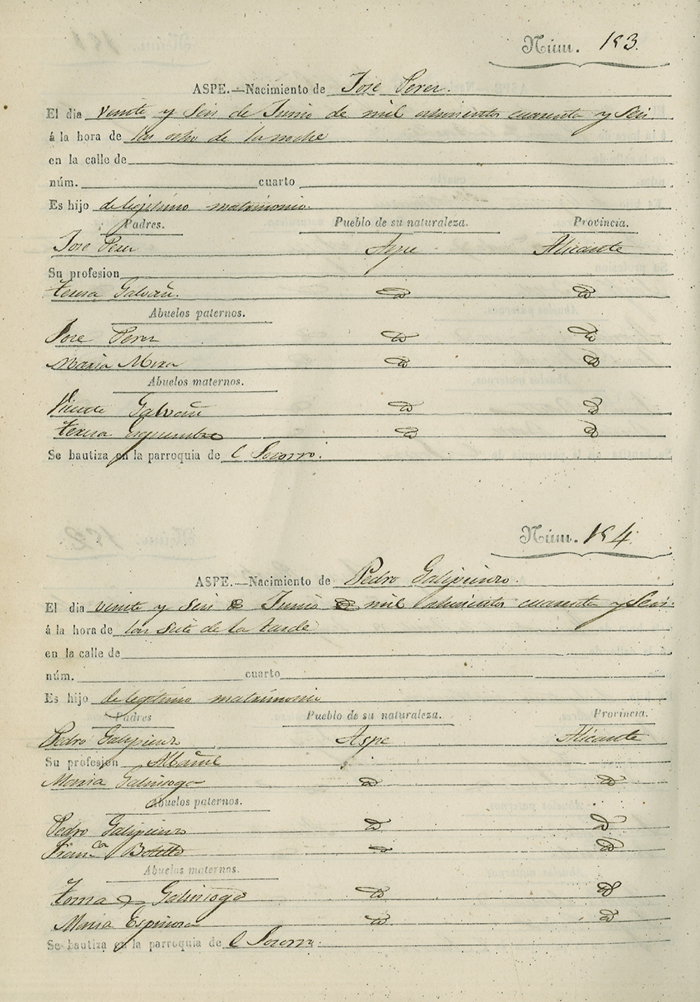 Núm. 183
ASPE.—Nacimiento de Jose Perez.
El dia veinte y seis de Junio de mil ochocientos cuarenta y seis
á la hora de las ocho de la noche
en la calle de
núm. cuarto
Es hijo de legitimo matrimonio
Padres. Pueblo de su naturaleza. Provincia.
Jose Perez Aspe Alicante
Su profesion
Teresa Galvañ. D D
Abuelos paternos.
Jose Perez D D
Maria Mira D D
Abuelos maternos.
Vicente Galvañ D D
Teresa D D
Se bautiza en la parroquia de el Socorro.
Núm. 184.
ASPE.—Nacimiento de Pedro Galipienzo.
El dia veinte y seis de Junio de mil ochocientos cuarenta y seis.
á la hora de las siete de la tarde
en la calle de
núm. cuarto
Es hijo de legitimo matrimonio
Padres Pueblo de su naturaleza. Provincia.
Pedro Galipienzo Aspe Alicante
Su profesion Albañil
Maria Galinsoga D D
Abuelos paternos.
Pedro Galipienzo D D
Franca Botella D D
Abuelos maternos.
Tomas Galinsoga D D
Maria Espinosa D D
Se bautiza en la parroquia de el Socorro.